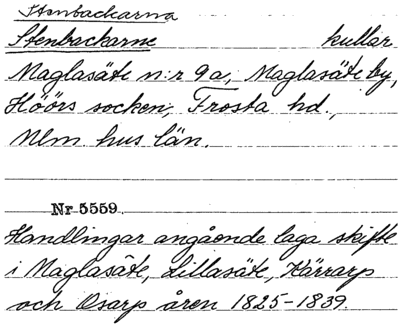 Stenbackarna
Stenbackarne kullar
Maglasäte n:r 9a, Maglasäte by,
Höörs socken, Frosta hd.,
Mlm hus län.
Nr 5559.
Handlingar angående laga skifte
i Maglasäte, Lillasäte, Kärrarp
och Osarp åren 1825-1839.